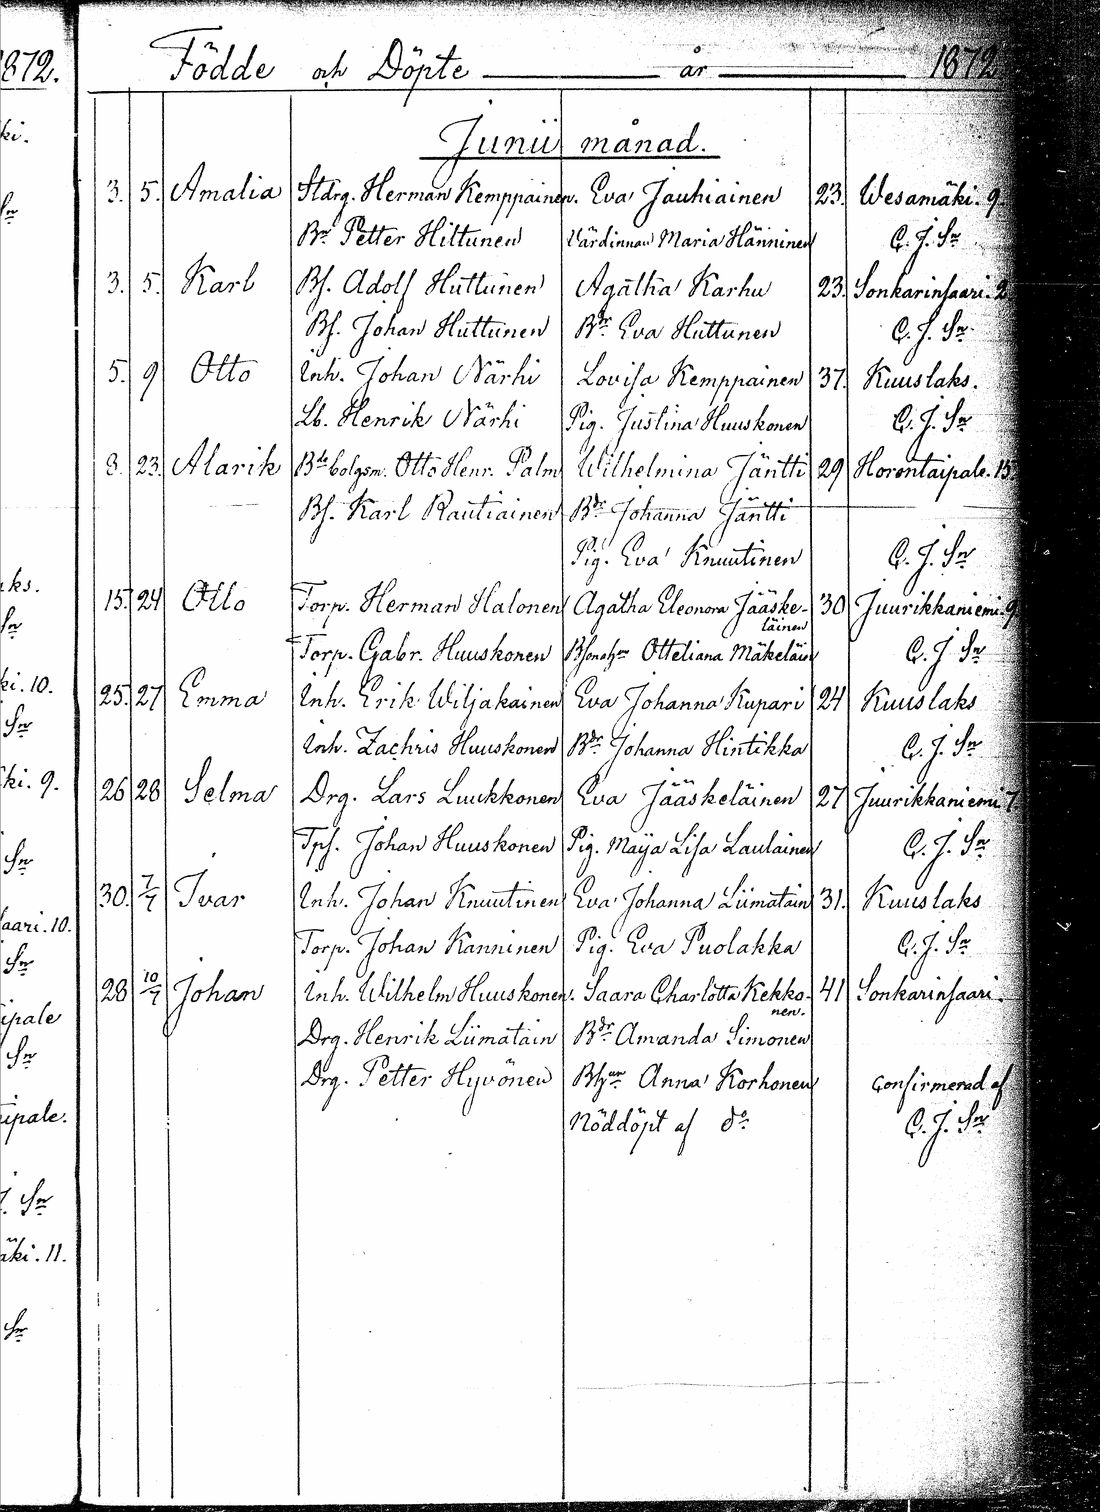 1872.
Födde och Döpte år 1872
Junii månad.
3. 5. Amalia Stdrg. Herman Kemppainen. Eva Jauhiainen 23. Wesamäki. 9
Br Petter Hiltunen Värdinnan Maria Hänninen C. J. Sn
3. 5. Karl Bs. Adolf Huttunen Agatha Karhu 23. Sonkarinsaari. 2
Bs. Johan Huttunen Bdr Eva Huttunen C. J. Sn
5. 9 Otto Inh. Johan Närhi Lovisa Kemppainen 37. Kuuslaks.
Lb. Henrik Närhi Pig. Justina Huuskonen C. J. Sn
8. 23. Alarik Bde bolgsm. Otto Henr. Palm Wilhelmina Jäntti 29 Horontaipale. 15
Bs. Karl Rautiainen Bdr Johanna Jäntti
Pig. Eva Knuutinen C. J. Sn
15. 24 Otto Torp. Herman Halonen Agatha Eleonora Jääske-
läinen 30 Juurikkaniemi. 9
Torp. Gabr. Huuskonen Bsonahn Otteliana Mäkeläin C. J. Sn
25. 27 Emma Inh. Erik Wiljakainen Eva Johanna Kupari 24 Kuuslaks
Inh. Zachris Huuskonen Bdr Johanna Hintikka C. J. Sn
26 28 Selma Drg. Lars Luukkonen Eva Jääskeläinen 27 Juurikkaniemi 7.
Tps. Johan Huuskonen Pig. Maija Lisa Laulainen C. J. Sn
30. 7/7 Ivar Inh. Johan Knuutinen Eva Johanna Liimatain 31. Kuuslaks
Torp. Johan Kanninen Pig. Eva Puolakka C. J. Sn
28 10/7 Johan Inh. Wilhelm Huuskonen. Saara Charlotta Kekko-
nen. 41 Sonkarinsaari.
Drg. Henrik Liimatain Bdr Amanda Simonen
Drg. Petter Hyvönen Bhn Anna Korhonen Confirmerad af
Nöddöpt af do C. J. Sn